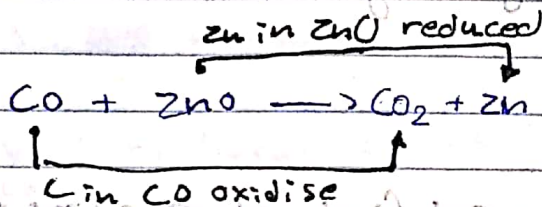 Zn in ZnO reduced
CO + ZnO ⟶ CO₂ + Zn
C in CO oxidise